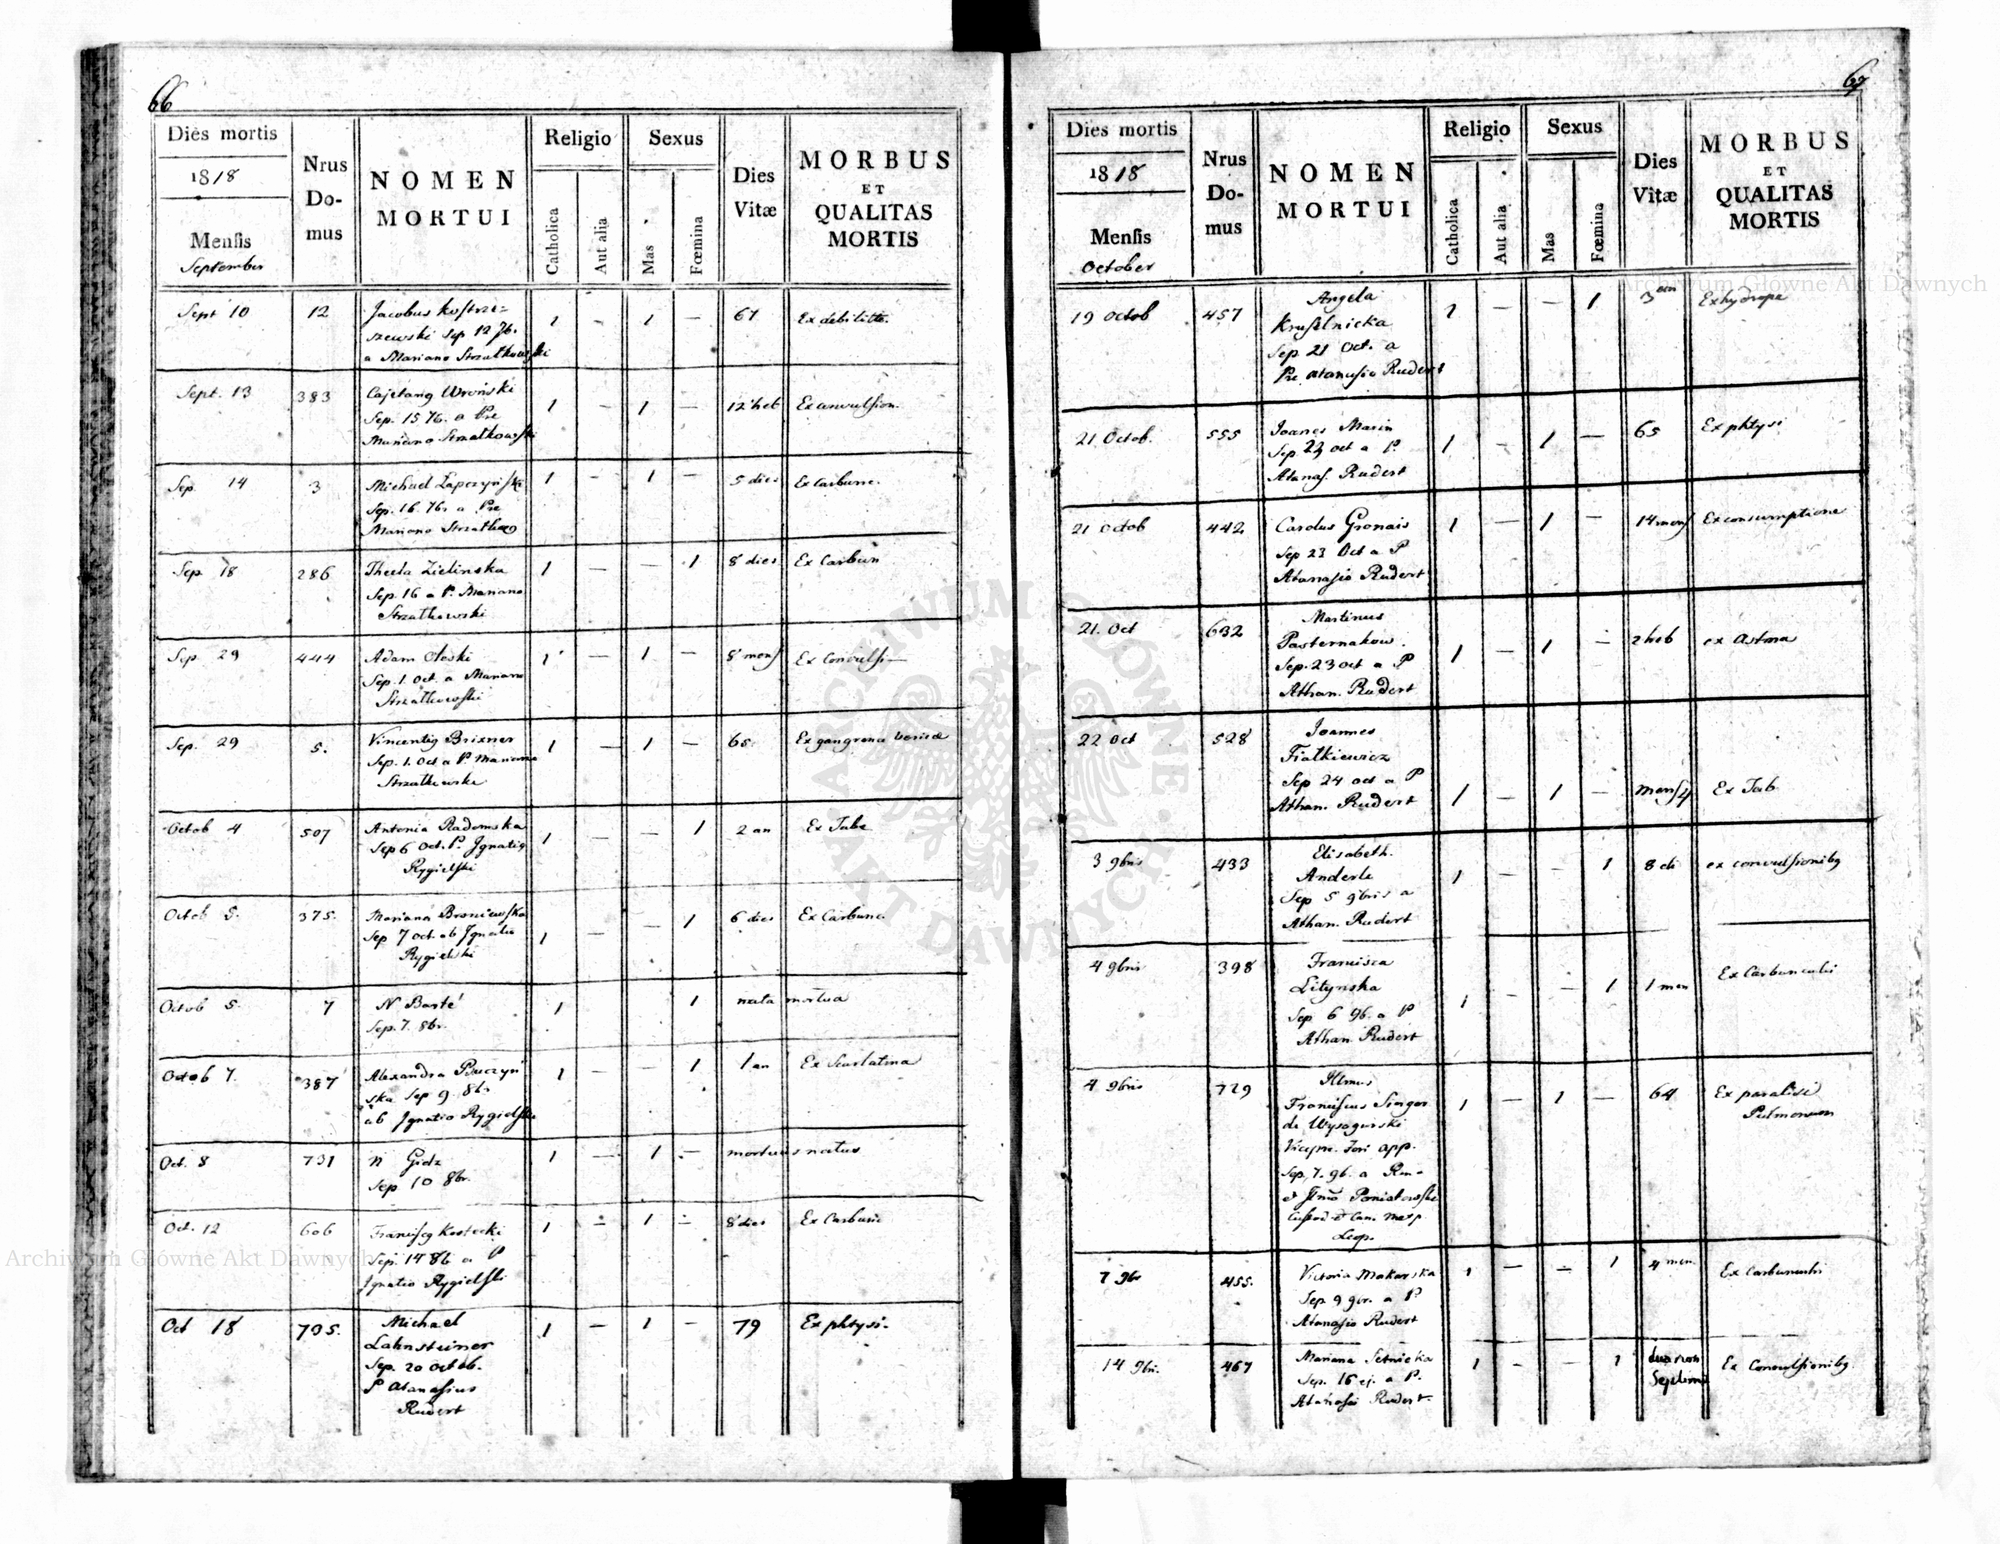 66
Dies mortis
1818
Mensis
September
Nrus
Do-
mus
NOMEN
MORTUI
Religio
Catholica
Aut alia
Sexus
Mas
Fœmina
Dies
Vitæ
MORBUS
ET
QUALITAS
MORTIS
Sept 10 12 Jacobus Kostrze= 1 – 1 – 67 Ex debilitte.
szewski Sep 12 7b.
a Mariano Strzałkowski
Sept. 13 383 Cajetang Wroński 1 – 1 – 12 heb Ex convulsion.
Sep. 15 7b. a Pre
Mariano Strzałkowski
Sep. 14 3 Michael Łapczyński 1 – 1 – 5 dies Ex Carbunc.
Sep. 16 7br a Pre
Mariano Strzałkow
Sep. 18 286 Thecla Zielinska 1 – – 1 8 dies Ex Carbun
Sep. 16 a P. Mariano
Strzałkowski
Sep. 29 444 Adam Oleski 1 – 1 – 8 mens Ex Convulsi
Sep. 1. Oct. a Mariano
Strzałkowski
Sep. 29 5. Vincentig Brixner 1 – 1 – 65. Ex gangrena
Sep. 1. Oct a P. Mariano
Strzałkowski
Octob 4 507 Antonia Radomska 1 – – 1 2 an Ex Tabe
Sep 6 Oct. P. Ignatig
Rygielski
Octob 5. 375. Mariana Broniewska 1 – – 1 6 dies Ex Carbunc
Sep 7 oct. ab Ignatio
Rygielski
Octob 5. 7 N Barté 1 1 nata mortua
Sep. 7. 8br.
Octob 7. 387 Alexandra 1 – – 1 1 an Ex Scarlatina
ska Sep 9 8br
ab Ignatio Rygielski
Oct. 8 731 N Gidz 1 – 1 – mortuus natus
Sep 10 8br.
Oct. 12 606 Franciscg Kostecki 1 – 1 – 8 dies Ex Carbunc
Sep. 14 8b a P
Ignatio Rygielski
Oct 18 795. Michael 1 – 1 – 79 Ex phtysi.
Lahnsteiner
Sep. 20 Octob.
P Atanasius
Rudert
67
Dies mortis
1818
Mensis
October
Nrus
Do-
mus
NOMEN
MORTUI
Religio
Catholica
Aut alia
Sexus
Mas
Fœmina
Dies
Vitæ
MORBUS
ET
QUALITAS
MORTIS
19 Octob 457 Angela 1 – – 1 3 Ex hydrope
Kruszelnicka
Sep. 21 Oct. a
Pre Atanasio Rudert
21 Octob. 555 Joanes Marin 1 – 1 – 65 Ex phtysi
Sep 23 oct a P.
Atanas. Rudert
21 Octob 442 Carolus Gronais 1 – 1 – 14 mens Ex consumptione
Sep 23 Oct a P
Atanasio Rudert
21. Oct 632 Martinus 1 – 1 – 2 heb ex Astma
Pasternakow.
Sep. 23 oct a P
Athan. Rudert
22 Oct 528 Joannes
Fiałkiewicz
Sep 24 oct a P
Athan. Rudert 1 – 1 – mens 4 Ex Tab.
3 9bris 433 Elisabeth. 1 – – 1 8 di ex convulsionibg
Anderle
Sep 5 9bris a
Athan. Rudert
4 9bris 398 Francisca 1 – – 1 1 men Ex Carbunculis
Litynska
Sep 6 9b. a P
Athan Rudert
4 9bris 729 Illmus 1 – 1 – 64 Ex paralisi
Franciscus Singer Pulmonum
de Wysogurski
Vicepre. Fori app.
Sep. 7. 9b. a Rm-
Poniatowski
Custod. et Can. Metp.
Leop.
7 9br 455. Victoria Makarska 1 – – 1 4 men. Ex Carbunculis
Sep. 9 9br. a P.
Atanasio Rudert
14 9br. 467 Mariana Setnicka 1 – – 1 duarum Ex Convulsionibg
Sep. 16 ej. a P. Septim
Atanasio Rudert
Archiwum Główne Akt Dawnych
Archiwum Główne Akt Dawnych
ARCHIWUM GŁÓWNE AKT DAWNYCH